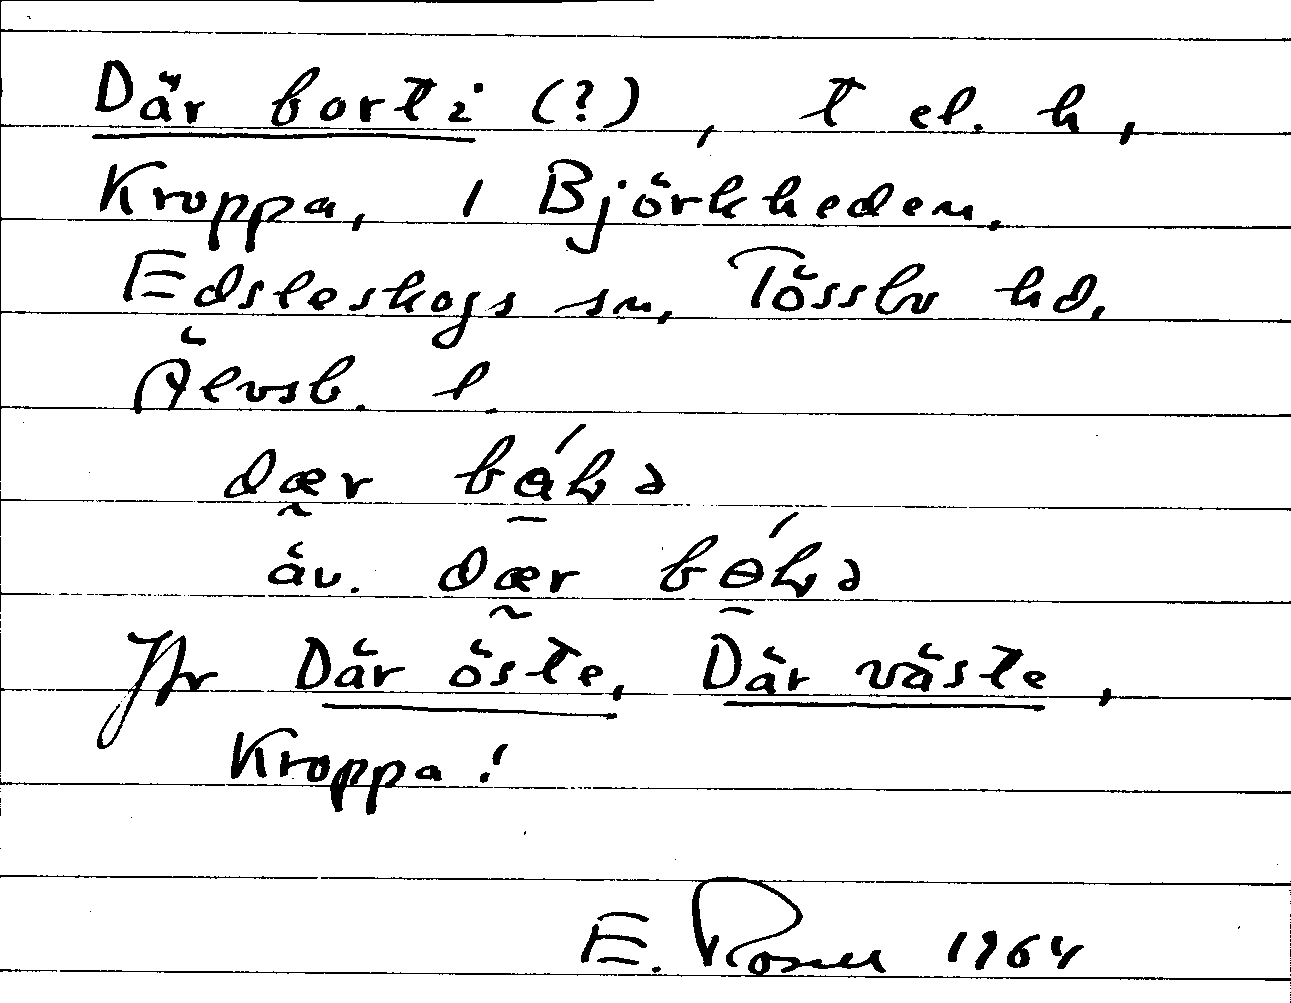 Där borti (?), t el. h,
Kroppa, 1 Björkheden.
Edsleskogs sn, Tössbo hd,
Älvsb. l.
dær
äv. dær
Jfr Där öste, Där väste,
Kroppa!
E. Rosell 1964